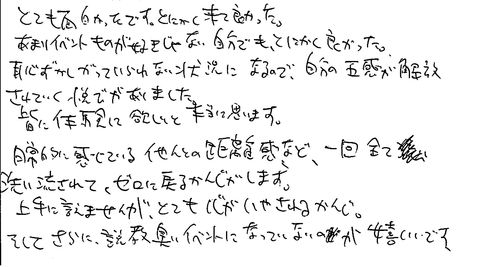 とても面白かったです。とにかく来て良かった。
あまりイベントものが好きじゃない自分でも、とにかく良かった。
恥ずかしがっていられない状況になるので、自分の五感が解放
されていく悦びがありました。
皆に体験して欲しいと本当に思います。
日常的に感じている他人との距離感など、一回全て
洗い流されて、ゼロに戻るかんじがします。
上手に言えませんが、とても心がいやされるかんじ。
そしてさらに、説教臭いイベントになっていないのが嬉しいです